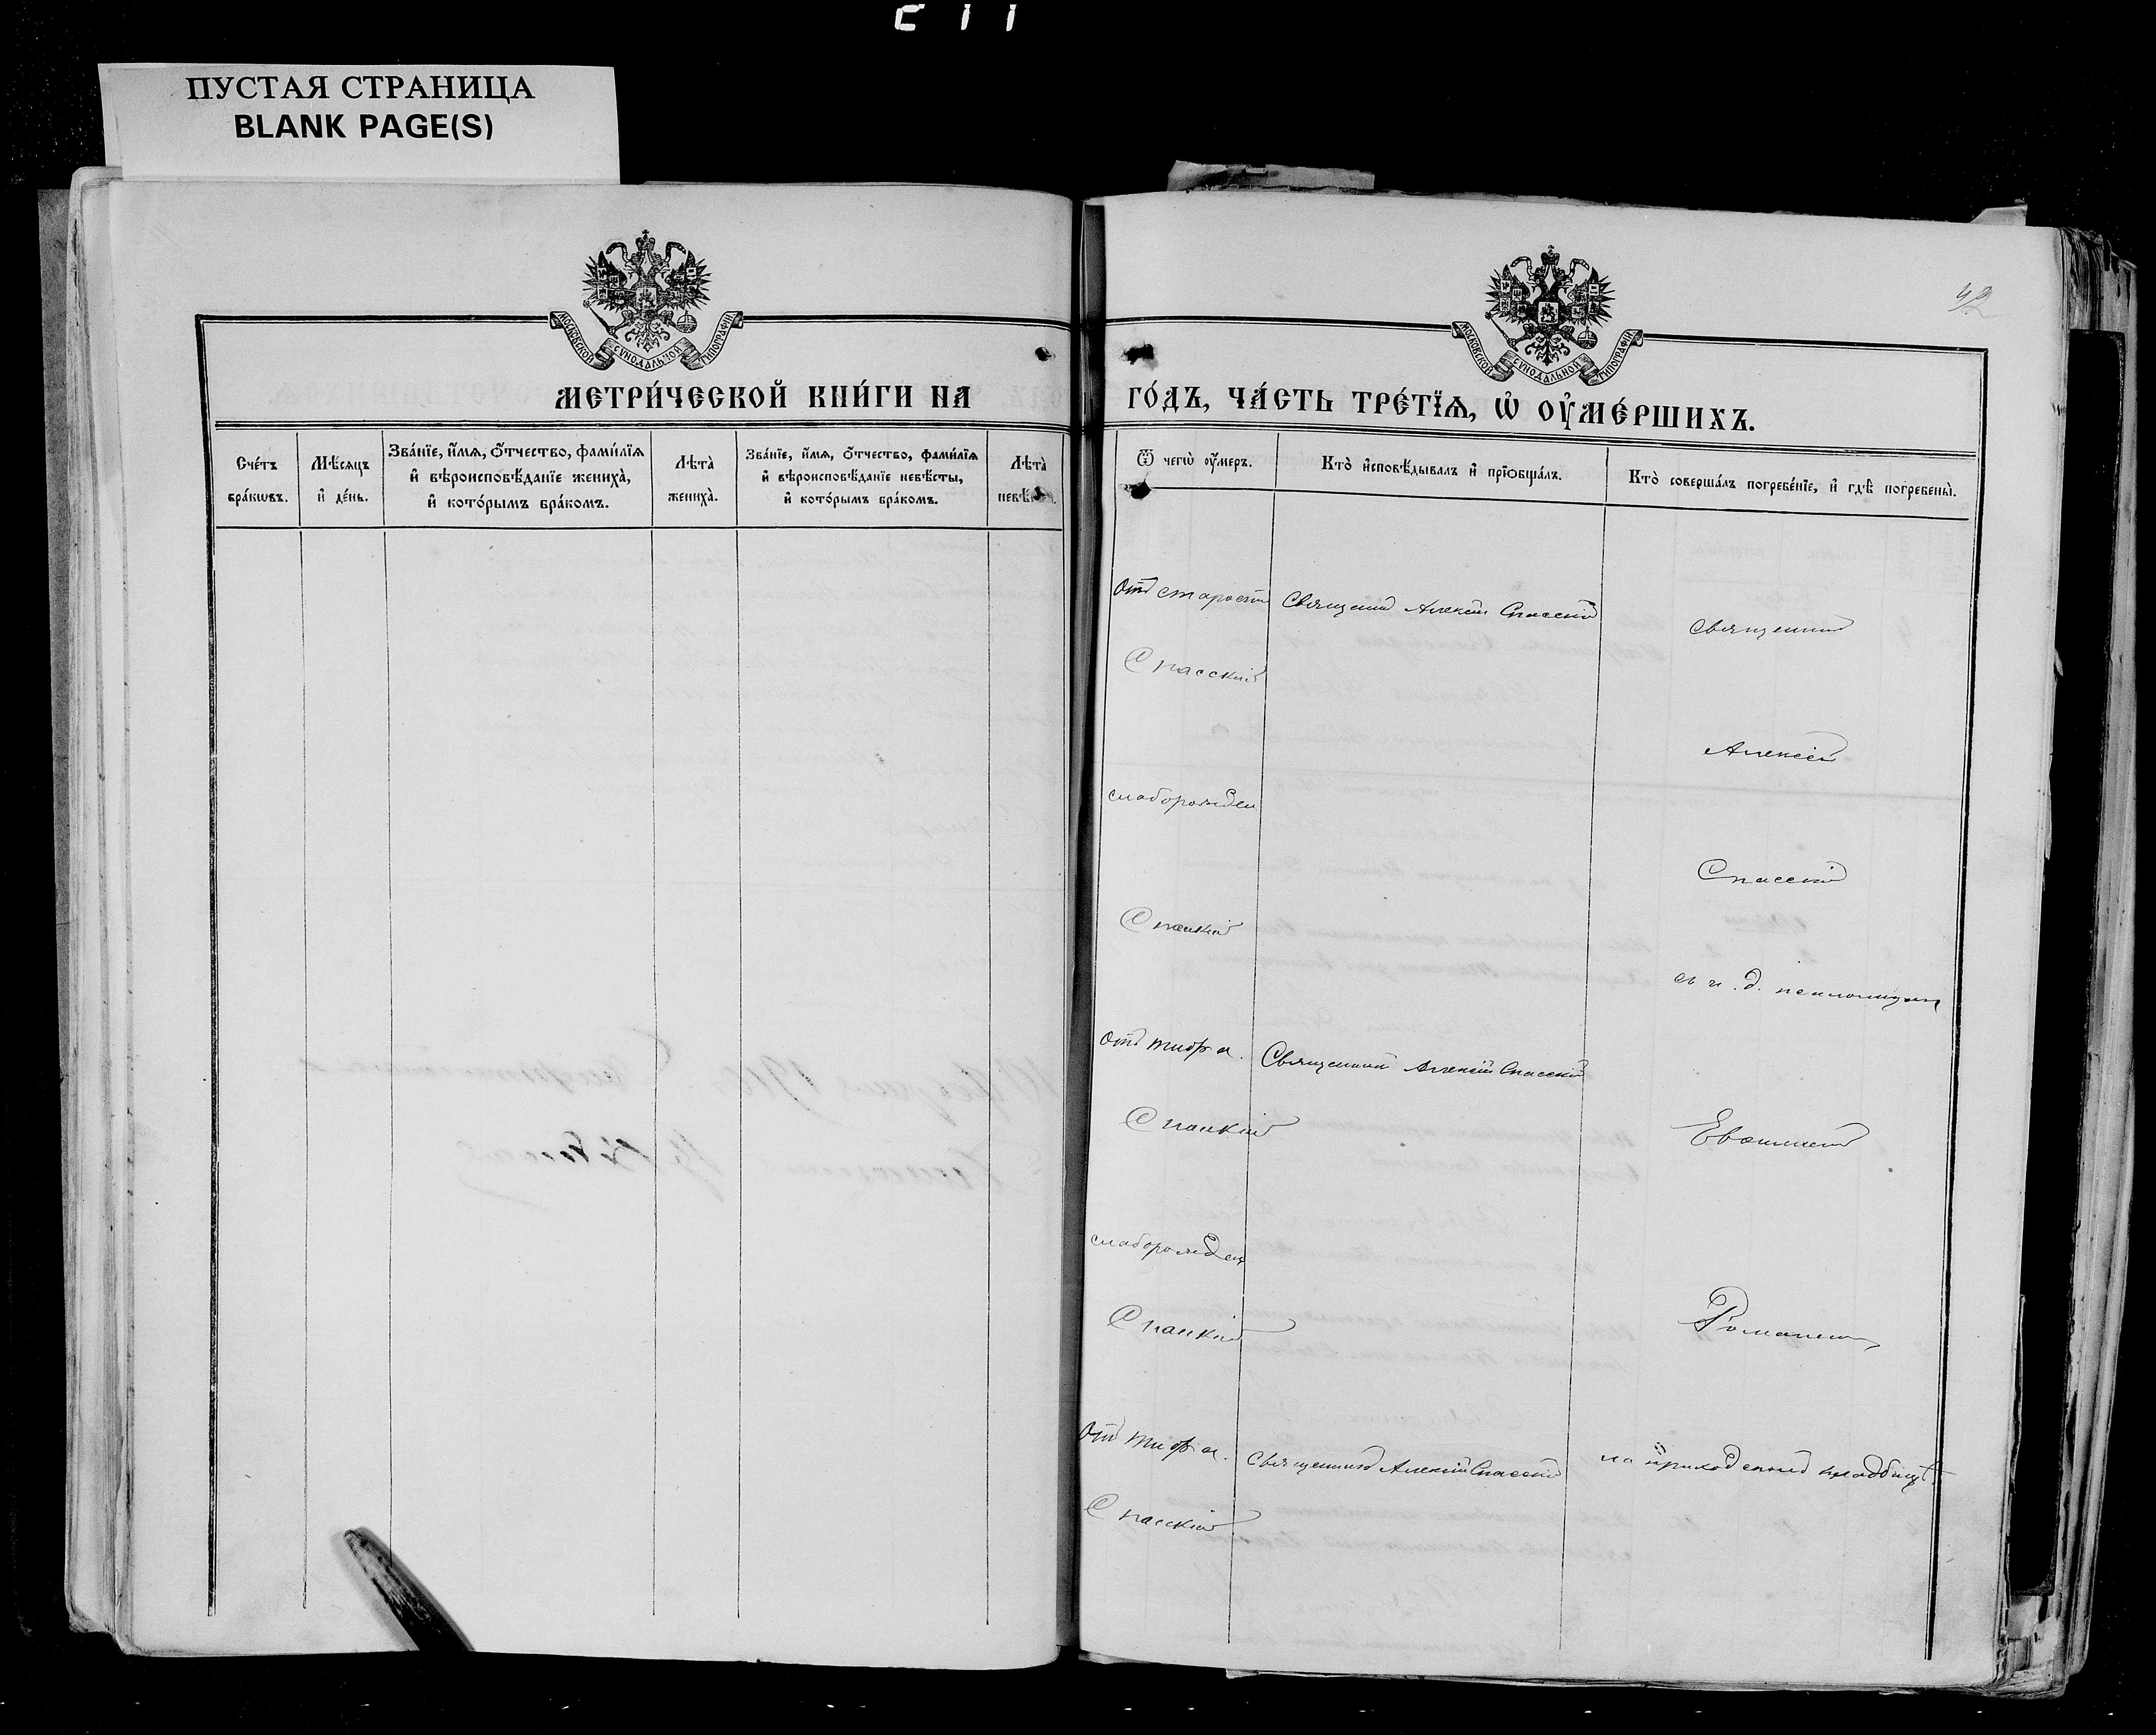 ПУСТАЯ СТРАНИЦА
BLANK PAGE(S)
МОСКОВСКОЙ СУНОДАЛЬНОЙ ТИПОГРАФІИ
МЕТРИ́ЧЕСКОЙ КНИ́ГИ НА
Сче́тъ бра́кѡвъ.
Мѣ́сяцъ и҆ де́нь.
Зва́нїе, и҆́мѧ, ѻ҆́тчество, фами́лїѧ
и҆ вѣроисповѣ́данїе жениха̀,
и҆ кото́рымъ бра́комъ.
Лѣта̀ жениха̀.
Зва́нїе, и҆́мѧ, ѻ҆́тчество, фами́лїѧ
и҆ вѣроисповѣ́данїе невѣ́сты,
и҆ кото́рымъ бра́комъ.
Лѣта̀
МОСКОВСКОЙ СУНОДАЛЬНОЙ ТИПОГРАФІИ
ГО́ДЪ, ЧА́СТЬ ТРЕ́ТЇѦ, Ѡ҆ ОУ҆МЕ́РШИХЪ.
Ѿ чегѡ̀ оу҆́меръ.
Кто̀ и҆сповѣ́дывалъ и҆ прїѻбща́лъ.
Кто̀ соверша́лъ погребе́нїе, и҆ гдѣ̀ погребены̀.
Отъ старости
Священникъ Алексій Спасскій
Священникъ
Спасскій
Алексій
слаборожден
Спасскій
Спасскій
съ и. д. псаломщика
Отъ тифа.
Священникъ Алексій Спасскій
Спасскій
слаборожден
Спасскій
Отъ тифа.
Священникъ Алексій Спасскій
на приходскомъ кладбищѣ
Спасскій